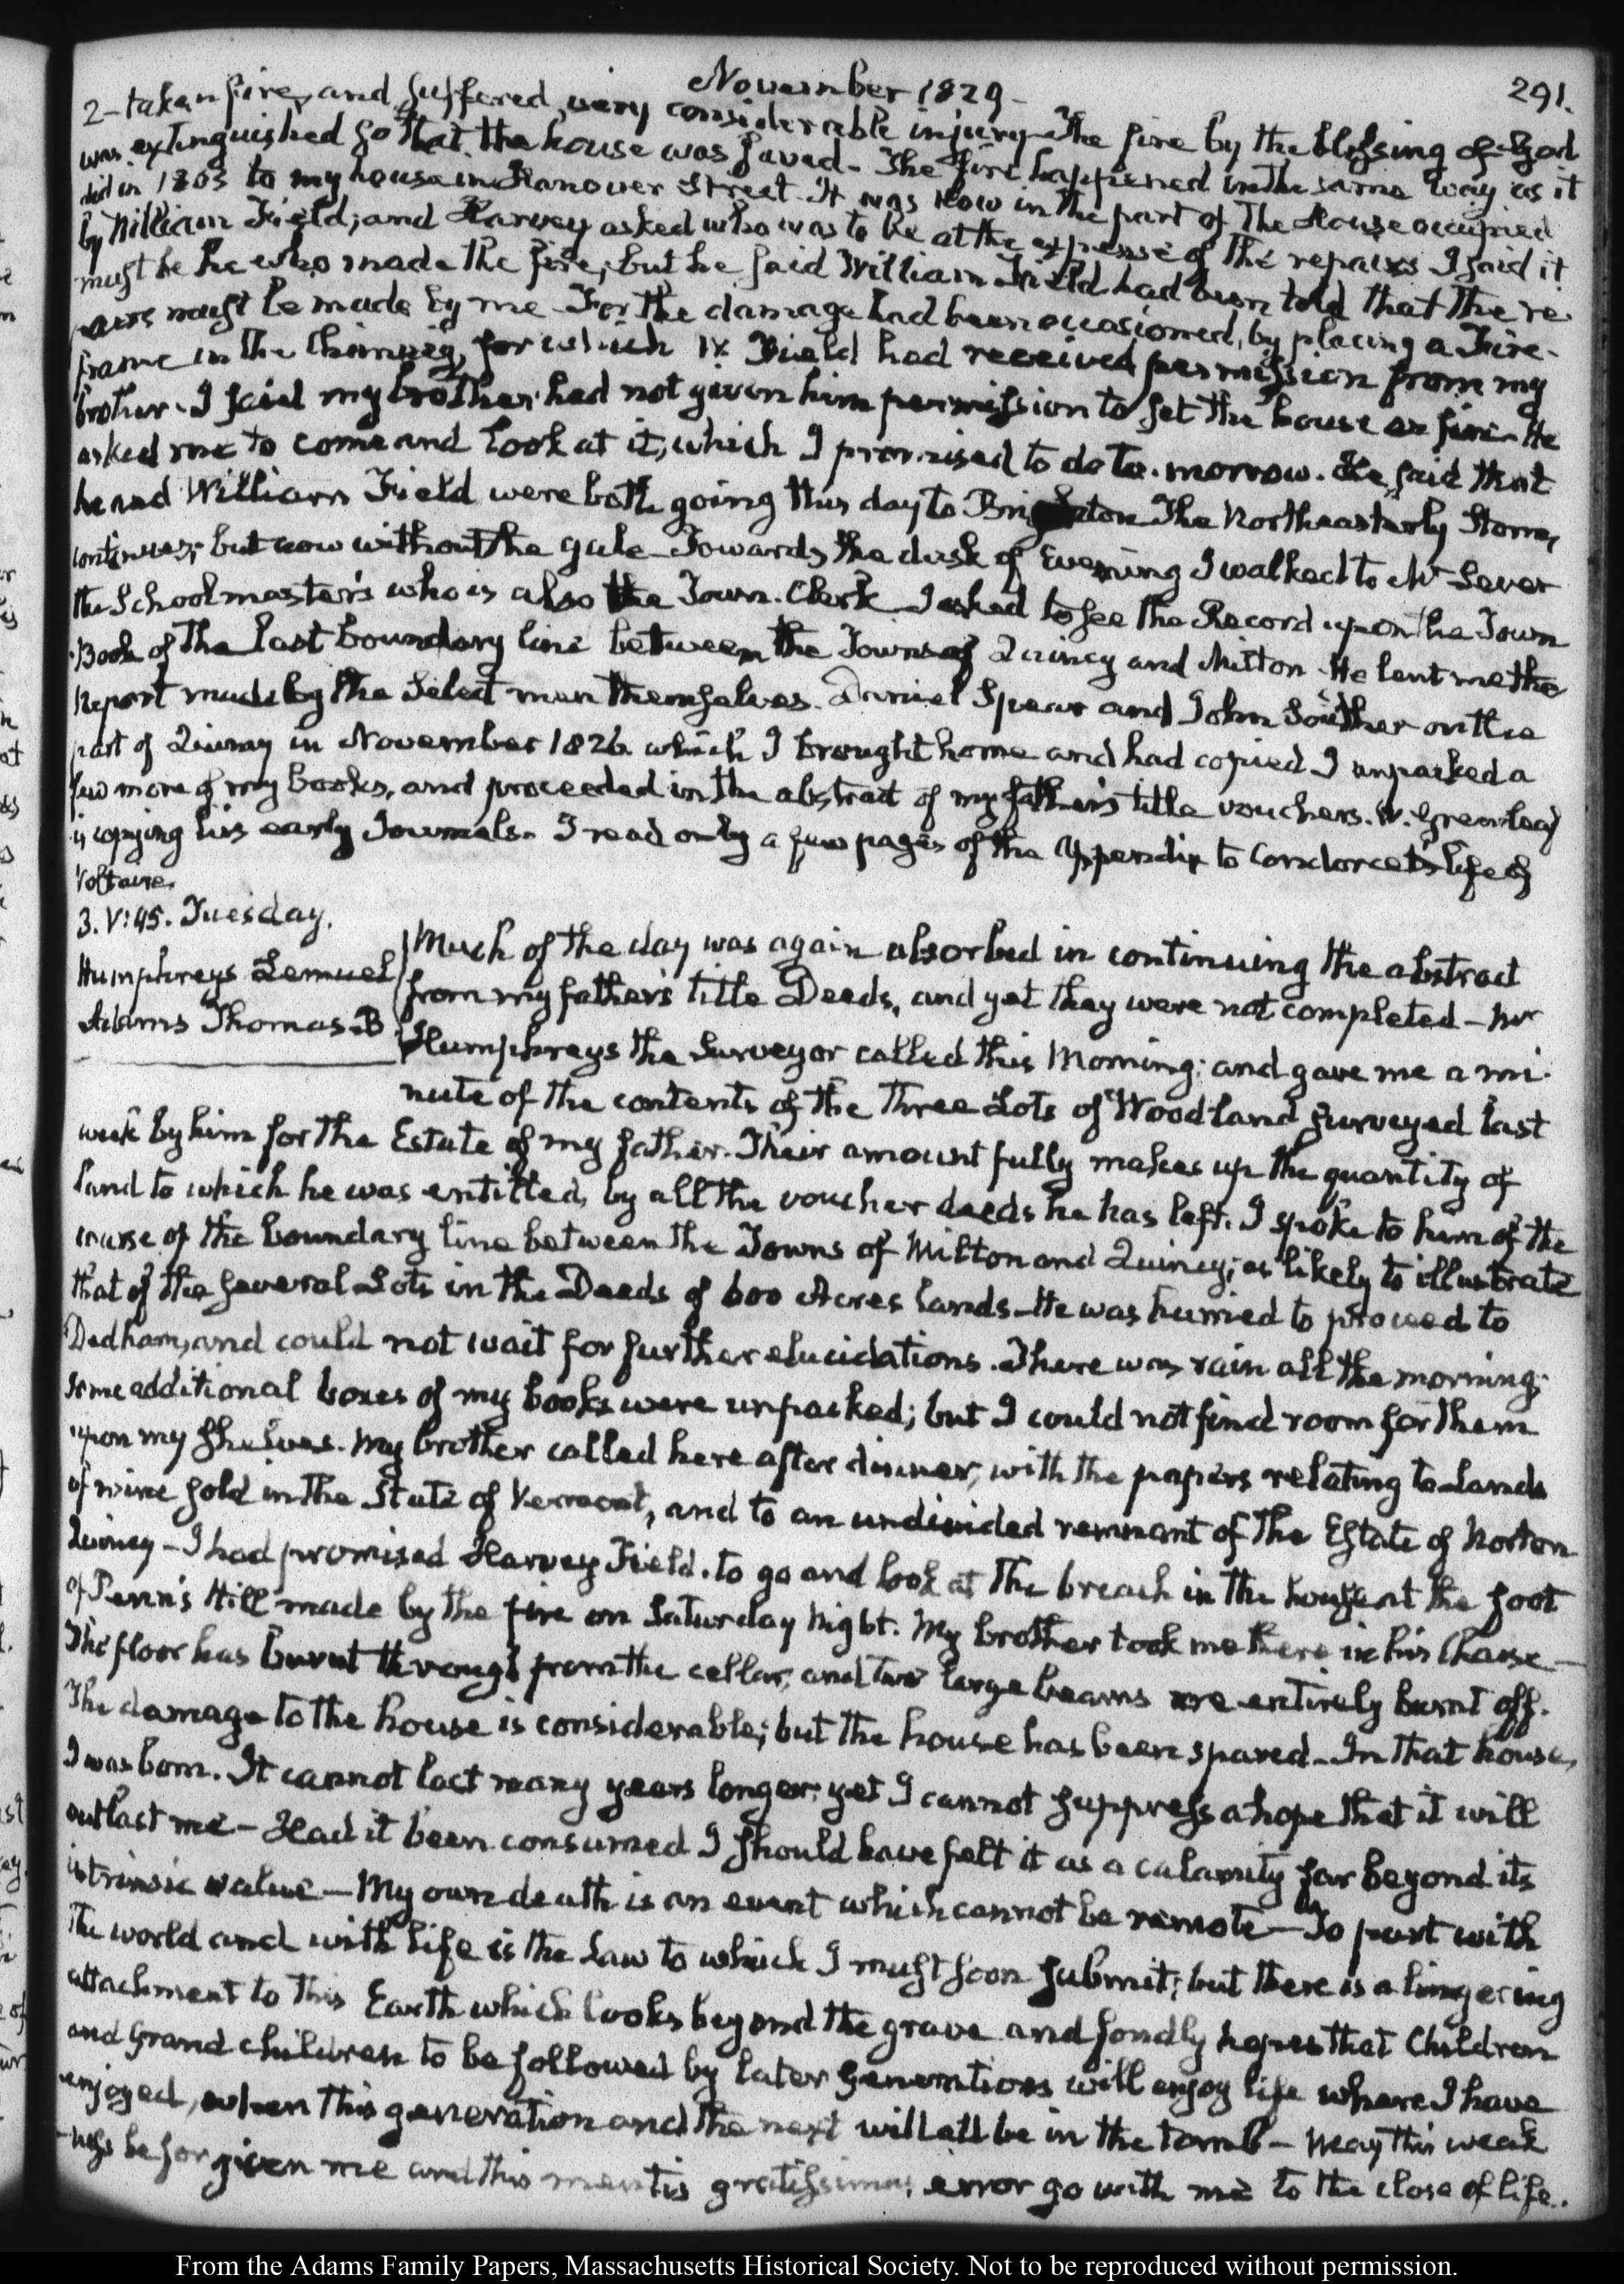 November 1829.
291.
2– taken fire, and suffered very considerable injury– The fire by the blessing of God
was extinguished so that the house was saved– The fire happened in the same way as it
did in 1803 to my house in Hanover Street. It was now in the part of the House occupied
by William Field; and Harvey asked who was to be at the expense of the repairs I said it
must be he who made the fire; but he said William Field had been told that the re-
pairs must be made by me– For the damage had been occasioned, by placing a Fire-
frame in the Chimney, for which W. Field had received permission from my
brother– I said my brother had not given him permission to set the house on fire– He
asked me to come and look at it, which I promised to do to-morrow. He said that
he and William Field were both going this day to Brighton The Northeasterly Storm,
continues; but now without the gale– Towards the dusk of Evening I walked to Mr Sever
the Schoolmaster's who is also the Town-Clerk– I asked to see the Record upon the Town
Book of the last boundary line between the Towns of Quincy and Milton– He lent me the
Report made by the Select men themselves. Daniel Spear and John Souther on the
part of Quincy in November 1826 which I brought home and had copied I unpacked a
few more of my books, and proceeded in the abstract of my father's title vouchers. W. Greenleaf
is copying his early Journals– I read only a few pages of the Appendix to Condorcet's life of
Voltaire.
3. V:45. Tuesday.
Humphreys Lemuel
Adams Thomas B
Much of the day was again absorbed in continuing the abstract
from my father's title Deeds, and yet they were not completed– Mr
Humphreys the Surveyor called this Morning; and gave me a mi-
nute of the contents of the three Lots of Woodland surveyed last
week by him for the Estate of my father. Their amount fully makes up the quantity of
land to which he was entitled, by all the voucher deeds he has left. I spoke to him of the
course of the boundary line between the Towns of Milton and Quincy; as likely to illustrate
that of the several Lots in the Deeds of 600 Acres lands– He was hurried to proceed to
Dedham, and could not wait for further elucidations. There was rain all the morning;
some additional boxes of my books were unpacked; but I could not find room for them
upon my shelves. My brother called here after dinner, with the papers relating to Lands
of mine sold in the State of Vermont, and to an undivided remnant of the Estate of Norton
Quincy– I had promised Harvey Field. to go and look at the breach in the house at the foot
of Penn's Hill made by the fire on Saturday Night. My brother took me there in his Chaise–
The floor has burnt through from the cellar, and two large beams are entirely burnt off.
The damage to the house is considerable; but the house has been spared– In that house,
I was born. It cannot last many years longer; yet I cannot suppress a hope that it will
outlast me– Had it been consumed I should have felt it as a calamity far beyond its
intrinsic value– My own death is an event which cannot be remote– To part with
the world and with life is the Law to which I must soon submit; but there is a lingering
attachment to this Earth which looks beyond the grave and fondly hopes that Children
and Grand children to be followed by later generations will enjoy life where I have
enjoyed, when this generation and the next will all be in the tomb– May this weak
-ness be forgiven me and this mentis gratissimus error go with me to the close of life.
From the Adams Family Papers, Massachusetts Historical Society. Not to be reproduced without permission.